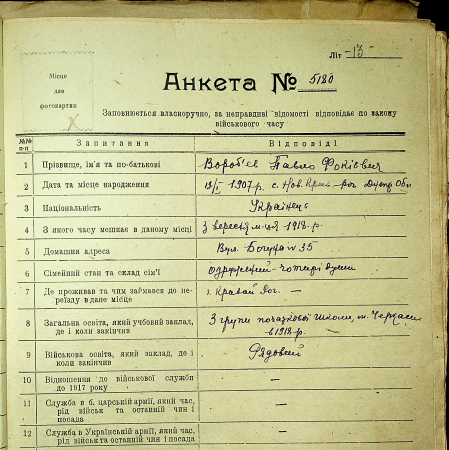 Літ -13-
Місце
для
фотокартки
Анкета № 5180
Заповнюється власноручно, за неправдиві відомості відповідає по закону
військового часу
№№
п-п
Запитання
Відповіді
1 Прізвище, ім'я та по-батькові Вороб'єв Павло Фокієвич
2 Дата та місце народження 1907 р. с. Нов. Крив-рог Днепр. Обл
3 Національність Українець
4 З якого часу мешкає в даному місці З вересня м-ця 1918-р.
5 Домашня адреса Вул. Богуна № 35
6 Сімейний стан та склад сім'ї одружений - чотири душі
7 Де проживав та чим займався до пе-
реїзду в дане місце г. Кривай Рог. —
8 Загальна освіта, який учбовий заклад,
де і коли закінчив 3 групи початкової школи, м. Черкаси
в 1918 р.
9 Військова освіта, який заклад, де і
коли закінчив Рядовий
10 Відношення до військової служби
до 1917 року —
11 Служба в б. царській армії, який час,
рід військ та останній чин і
посада —
12 Служба в Українській армії, який час,
рід військ та останній чин і посада —